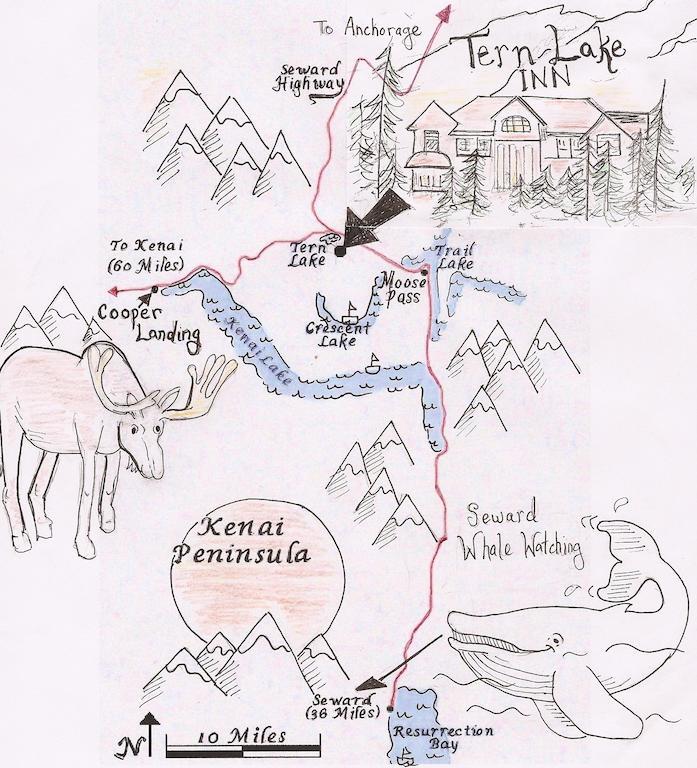 To Anchorage
Seward
Highway
Tern Lake
INN
To Kenai
(60 Miles)
Tern
Lake
Trail
Lake
Moose
Pass
Cooper
Landing
Crescent
Lake
Kenai Lake
Kenai
Peninsula
Seward
Whale Watching
Seward
(36 Miles)
Resurrection
Bay
N
10 Miles